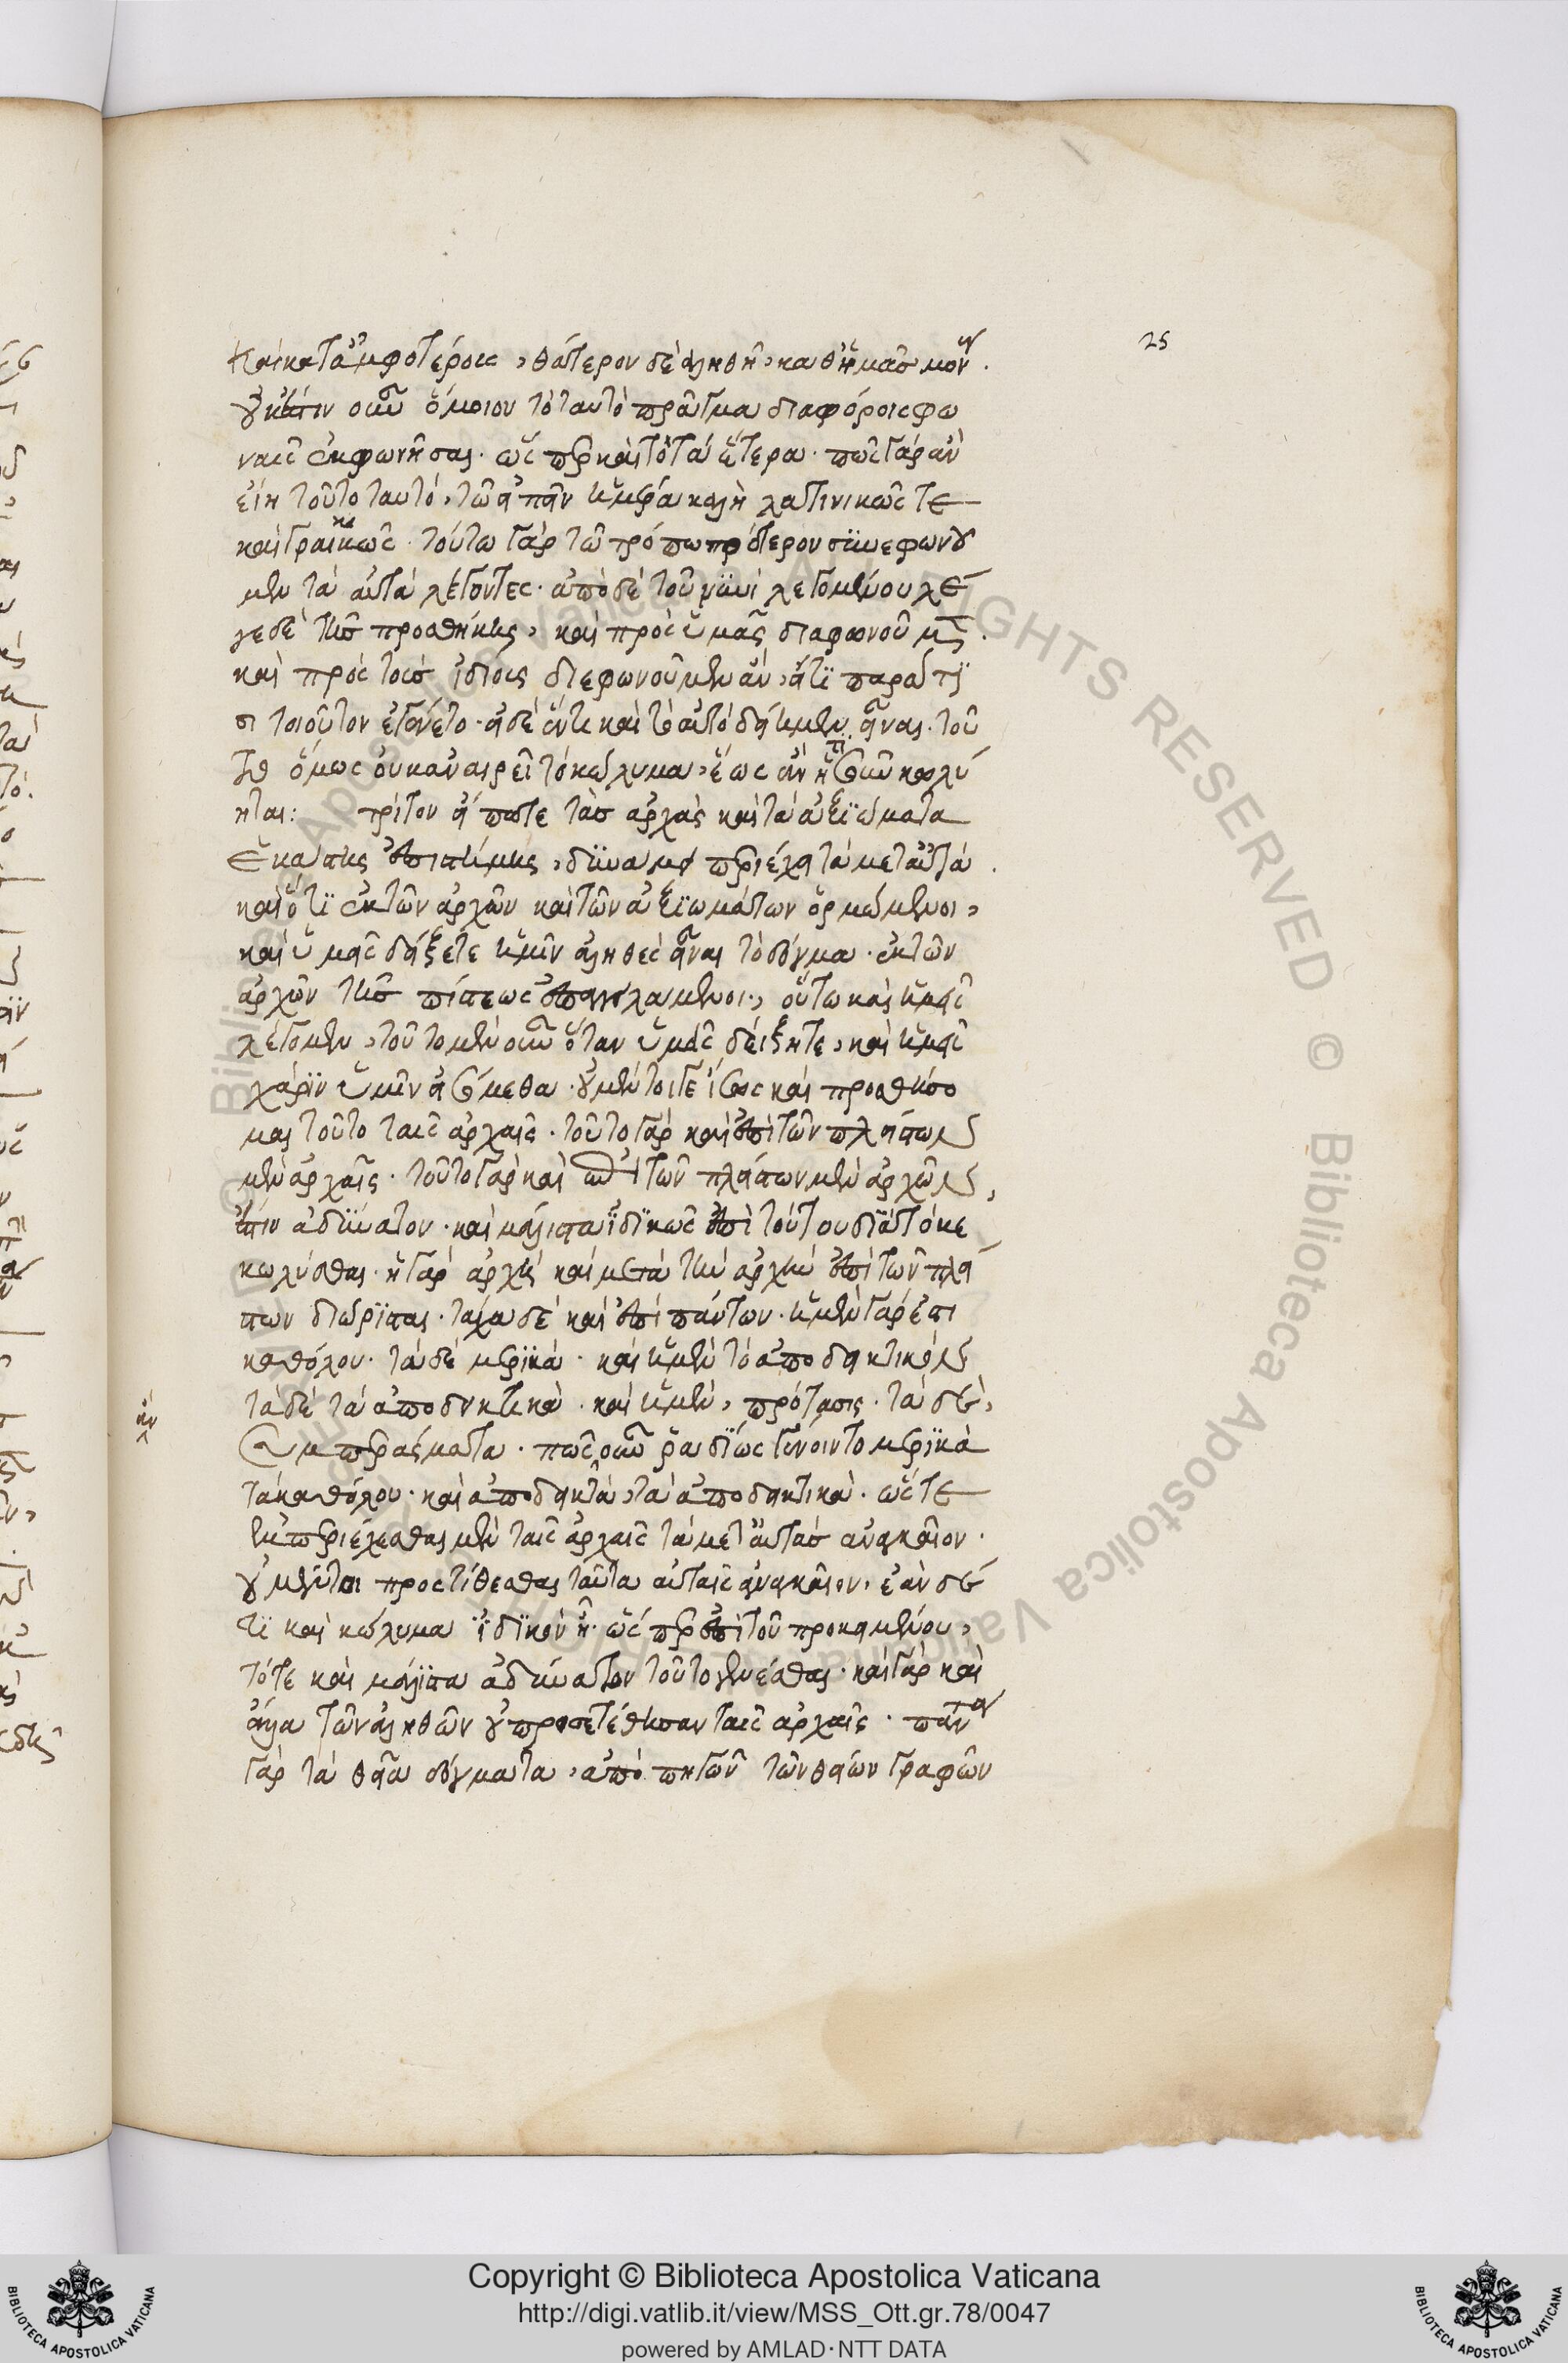 25
καὶ κατ' ἀμφοτέροις, θάτερον δὲ ἀληθῆ, καθ' ἡμᾶς μόνον.
οὐκ ἔστιν οὖν ὅμοιον τὸ ταυτὸ πρᾶγμα διαφόροις φω
ναῖς ἐκφωνῆσαι. ὥσπερ καὶ τὸ τὰ ἕτερα. πῶς γὰρ ἂν
εἴη τοῦτο ταυτό, τῷ εἰπεῖν ἡμέρα καλὴ λατινικῶς τε
καὶ γραικικῶς. τούτω γὰρ τῶ τρόπω πρότερον συνεφωνοῦ
μεν τὰ αὐτὰ λέγοντες. ἀπὸ δὲ τοῦ νυνὶ λεγομένου λέ
γε δὲ τῆς προσθήκης, καὶ πρὸς ὑμᾶς διαφωνοῦμεν.
καὶ πρὸς τοὺς ἰδίους διεφωνοῦμεν ἂν, εἴ τι παρὰ τϊ
σι τοιοῦτον ἐγένετο. εἰ δὲ ἕν τι καὶ τὸ αὐτὸ δείημεν εἶναι. τοῦ
το ὅμως οὐκ ἀναιρεῖ τὸ κώλυμα, ἕως ἂν ᾖ
ηται: τρίτον εἴποτε τὰς ἀρχὰς καὶ τὰ ἀξιώματα
ἑκάστης ἐπιστήμης, δυνάμει περιέχει τὰ μετ' αὐτά.
καὶ ὅτι ἐκ τῶν ἀρχῶν καὶ τῶν ἀξιωμάτων ὁρμώμενοι,
καὶ ὑμᾶς δείξετε ἡμῖν ἀληθὲς εἶναι τὸ δόγμα. ἐκ τῶν
ἀρχῶν τῆς πίστεως οὕτω καὶ ἡμεῖς
λέγομεν, τοῦτο μὲν οὖν ὅταν ὑμεῖς δείξητε, καὶ ἡμεῖς
χάριν ὑμῖν εἰσόμεθα. οὐ μέντοι γε ἴσως καὶ προσθήσο
μαι τοῦτο ταῖς ἀρχαῖς. τοῦτο γὰρ καὶ ἐπὶ τῶν πλείστων
μὲν ἀρχαῖς. τοῦτο γὰρ καὶ ἐπὶ τῶν πλείστων μὲν ἀρχῶν,
ἐστιν ἀδύνατον. καὶ μάλιστα ἰδικῶς ἐπὶ τούτου διὰ τό κε
κωλύσθαι. ἡ γὰρ ἀρχὴ καὶ μετὰ τὴν ἀρχὴν ἐπὶ τῶν πλεί
στων διώρισται. τάχα δὲ καὶ ἐπὶ πάντων. ἡ μὲν γὰρ ἐστι
καθόλου. τὰ δὲ μερικά. καὶ ἡ μὲν τὸ ἀποδεικτικόν
τὰ δὲ τὰ ἀποδεικτικὰ. καὶ ἡ μὲν, πρότασις. τὰ δὲ,
συμπεράσματα. πῶς οὖν ῥαδίως γένοιντο μερικὰ
ἂν
τὰ καθόλου. καὶ ἀποδεικτὰ, τὰ ἀποδεικτικὰ. ὥστε
ἐμπεριέχεσθαι μὲν ταῖς ἀρχαῖς τὰ μετ' αὐτὰς ἀναγκαῖον.
οὐ μέντοι προστίθεσθαι ταῦτα αὐταῖς ἀναγκαῖον. ἐὰν δέ
τι καὶ κώλυμα ἰδικὸν ᾖ. ὥσπερ ἐπὶ τοῦ προκειμένου,
τότε καὶ μάλιστα ἀδύνατον τοῦτο γενέσθαι. καὶ γὰρ καὶ
ἄλλα τῶν ἀληθῶν οὐ προσετέθησαν ταῖς ἀρχαῖς. πάντα
γὰρ τὰ θεῖα δόγματα, ἀπὸ πηγῶν τῶν θείων γραφῶν
Copyright © Biblioteca Apostolica Vaticana
http://digi.vatlib.it/view/MSS_Ott.gr.78/0047
powered by AMLAD·NTT DATA
BIBLIOTECA APOSTOLICA VATICANA
BIBLIOTECA APOSTOLICA VATICANA